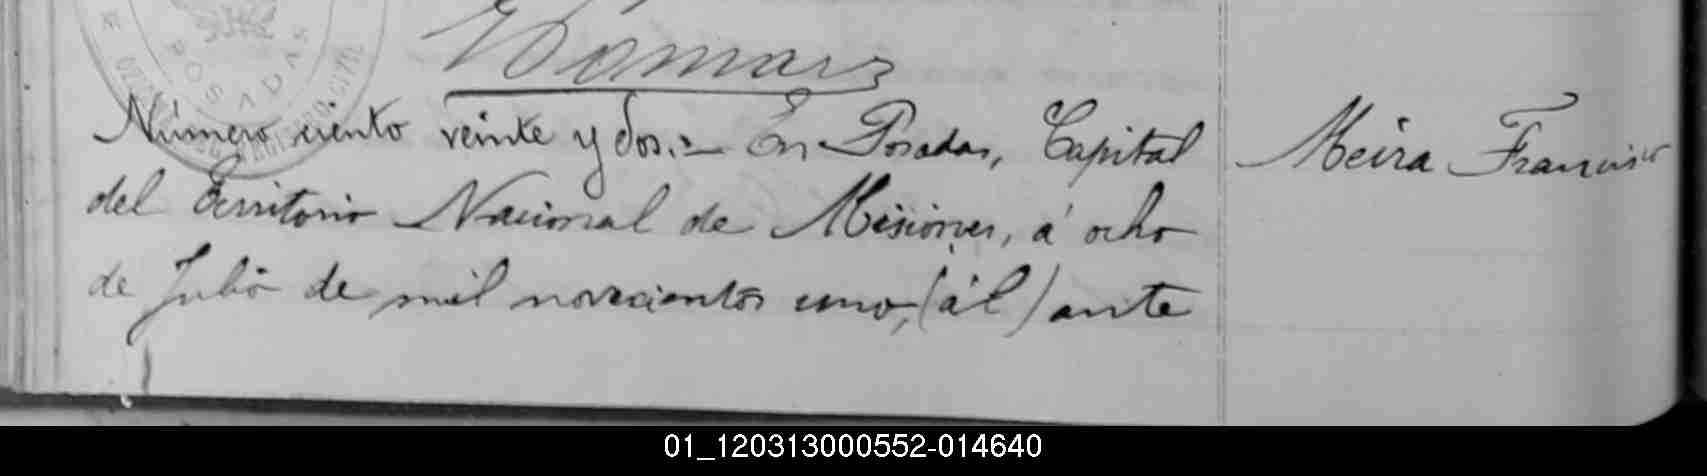 POSADAS
Número ciento veinte y dos.- En Posadas, Capital
Meira Francisco
del Territorio Nacional de Misiones, á ocho
de Julio de mil novecientos uno, (ál) ante
01_120313000552-014640